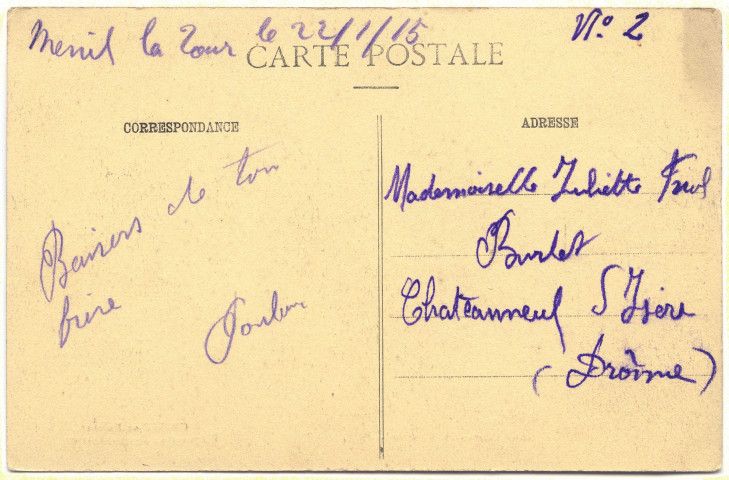 Menil la Tour le 22/1/15 N° 2
CARTE POSTALE
CORRESPONDANCE
Baisers de ton
frere
ADRESSE
Mademoiselle Juliette
Burlet
Chateauneuf S Isère
(Drôme)